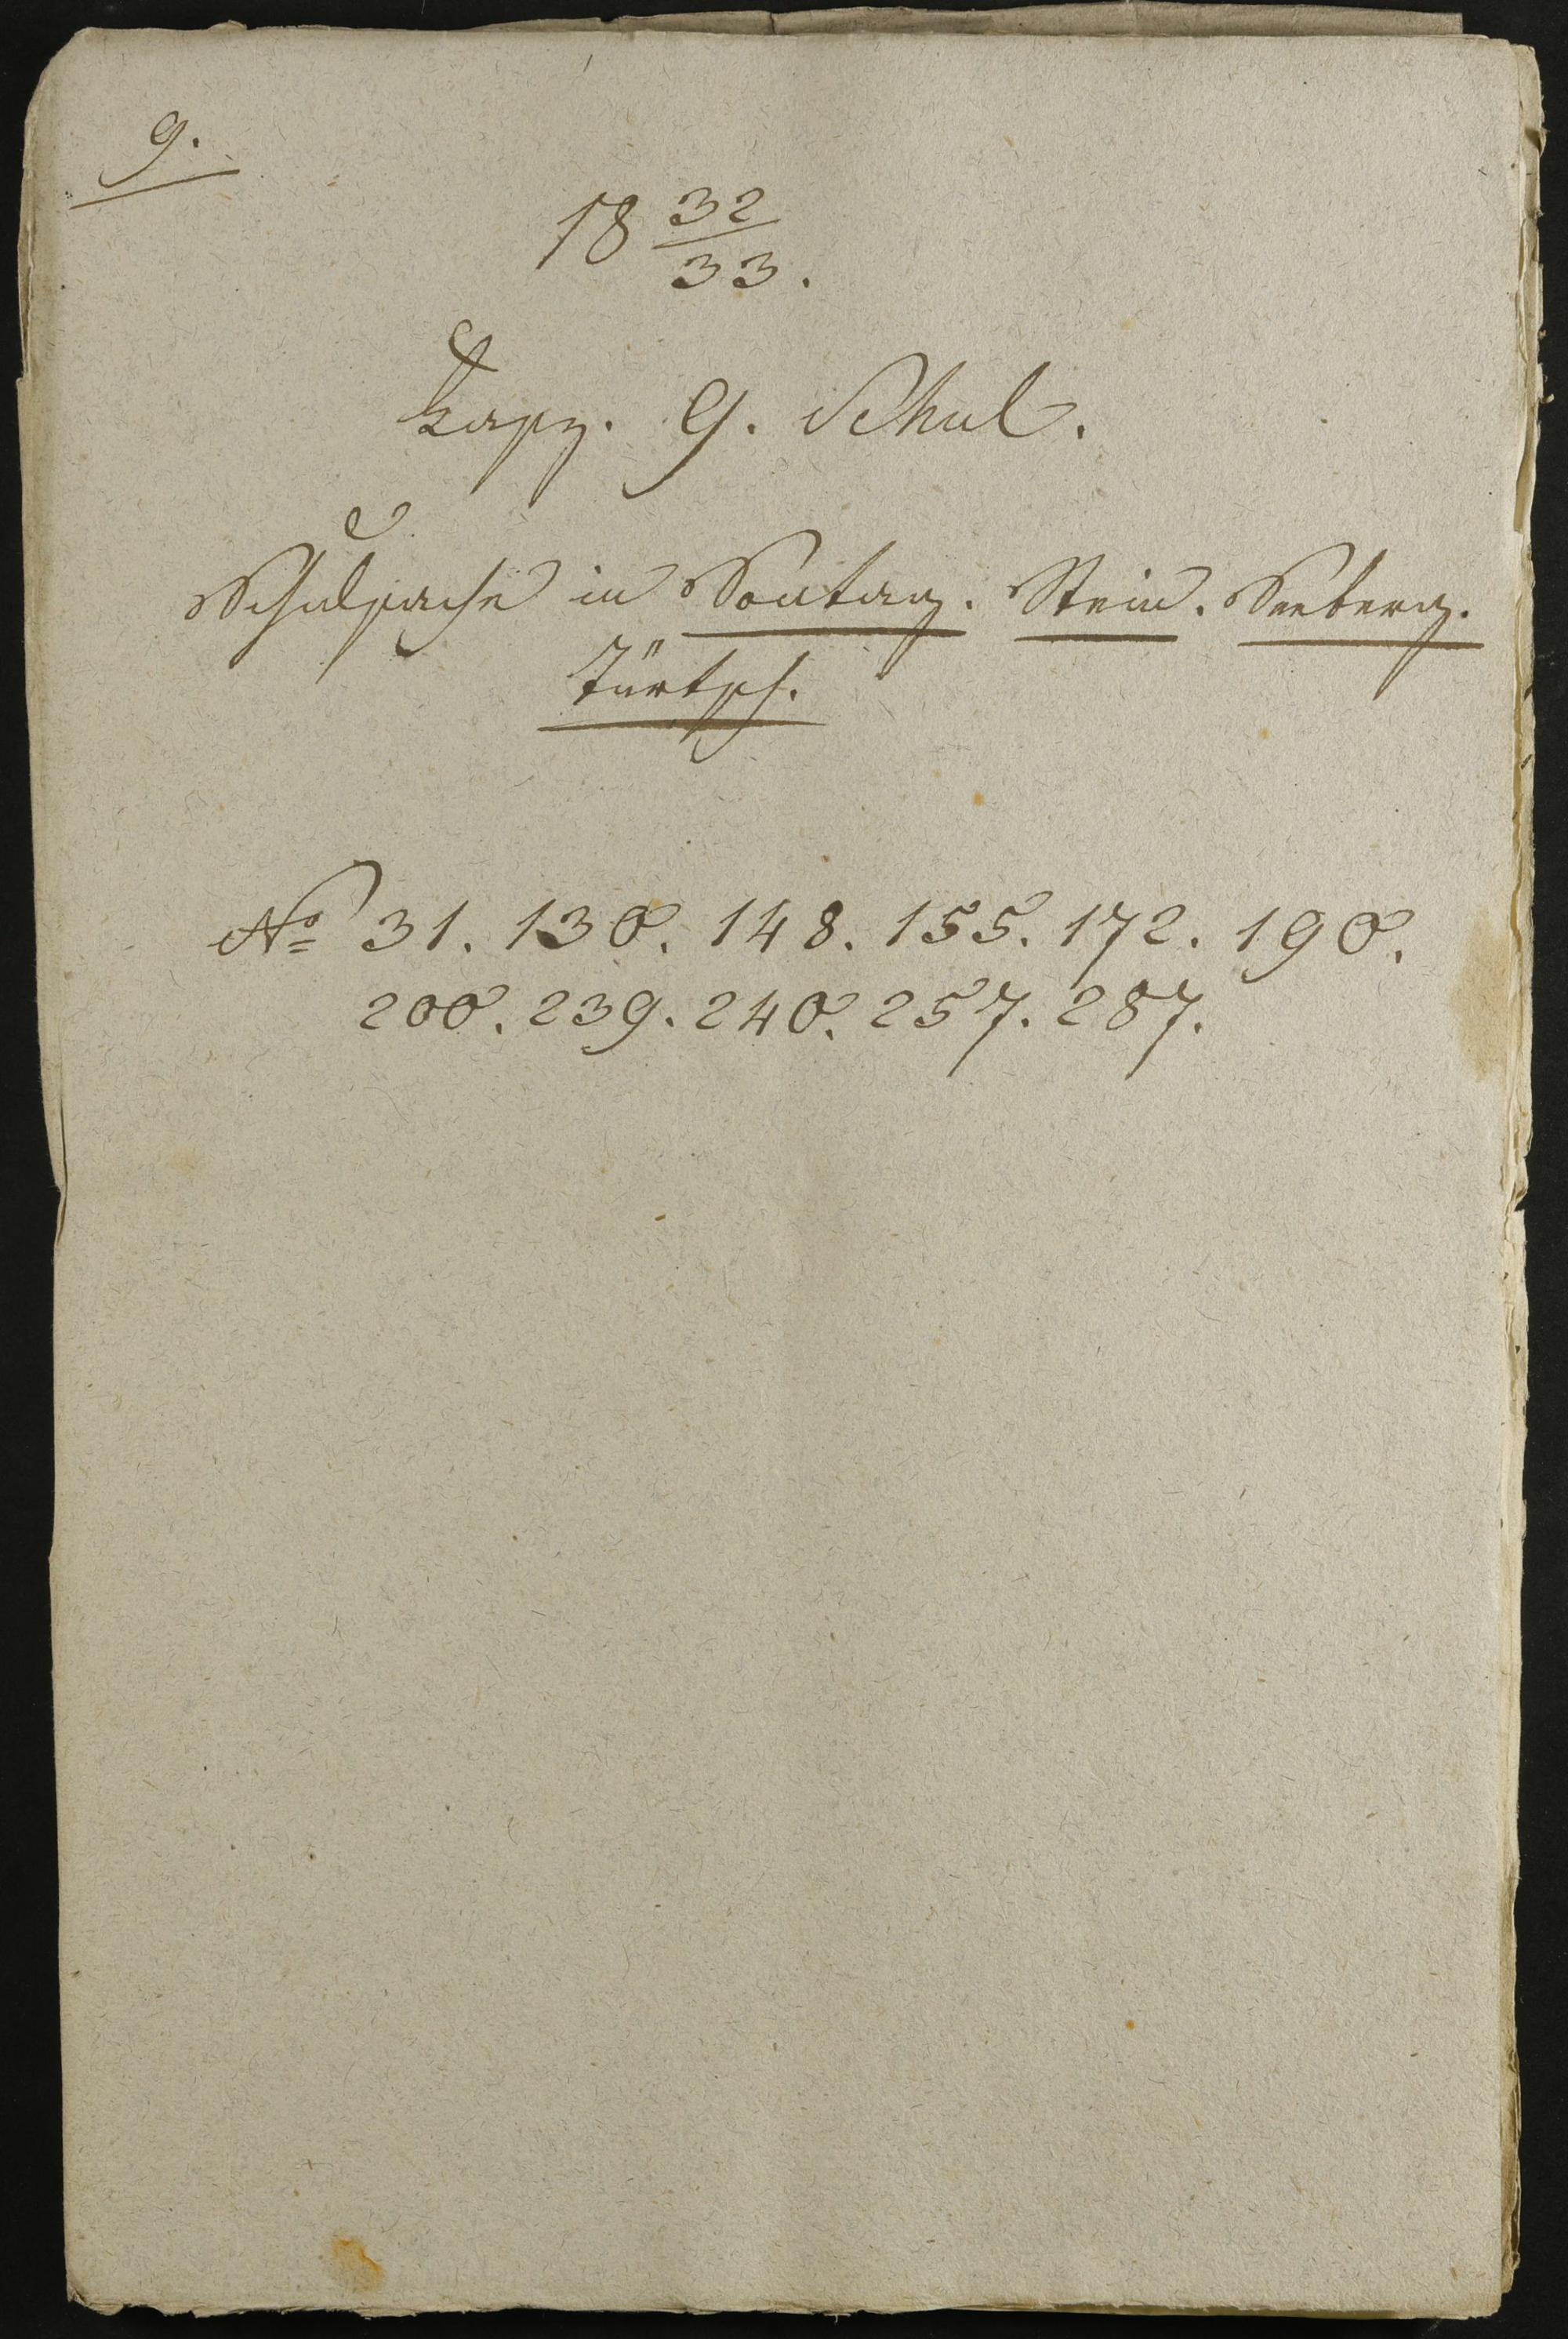 9.
18 32/33.
Fasz. 9. Schul.
Schulsache in Sontag. Stein. Seeberg.
Türtsch.
No 31. 130. 148. 155. 172. 190.
200. 239. 240. 257. 287.